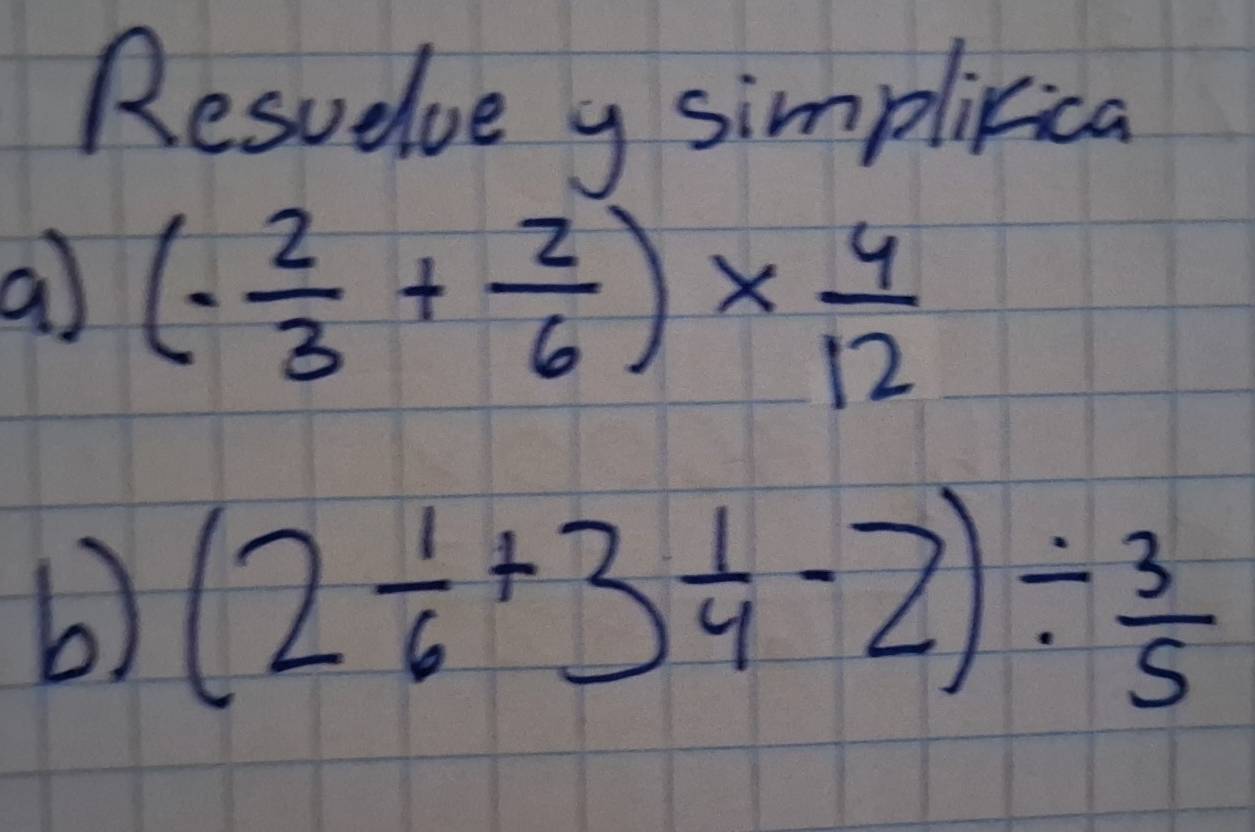 Resuelve y simplifica
a) (-2/3 + 2/6) × 4/12
b) (2 1/6 + 3 1/4 - 2) ÷ 3/5